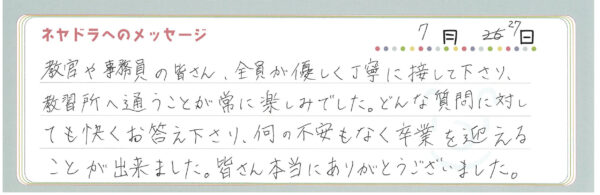 ネヤドラへのメッセージ 7月27日
教官や事務員の皆さん、全員が優しく丁寧に接して下さり、
教習所へ通うことが常に楽しみでした。どんな質問に対し
ても快くお答え下さり、何の不安もなく卒業を迎える
ことが出来ました。皆さん本当にありがとうございました。